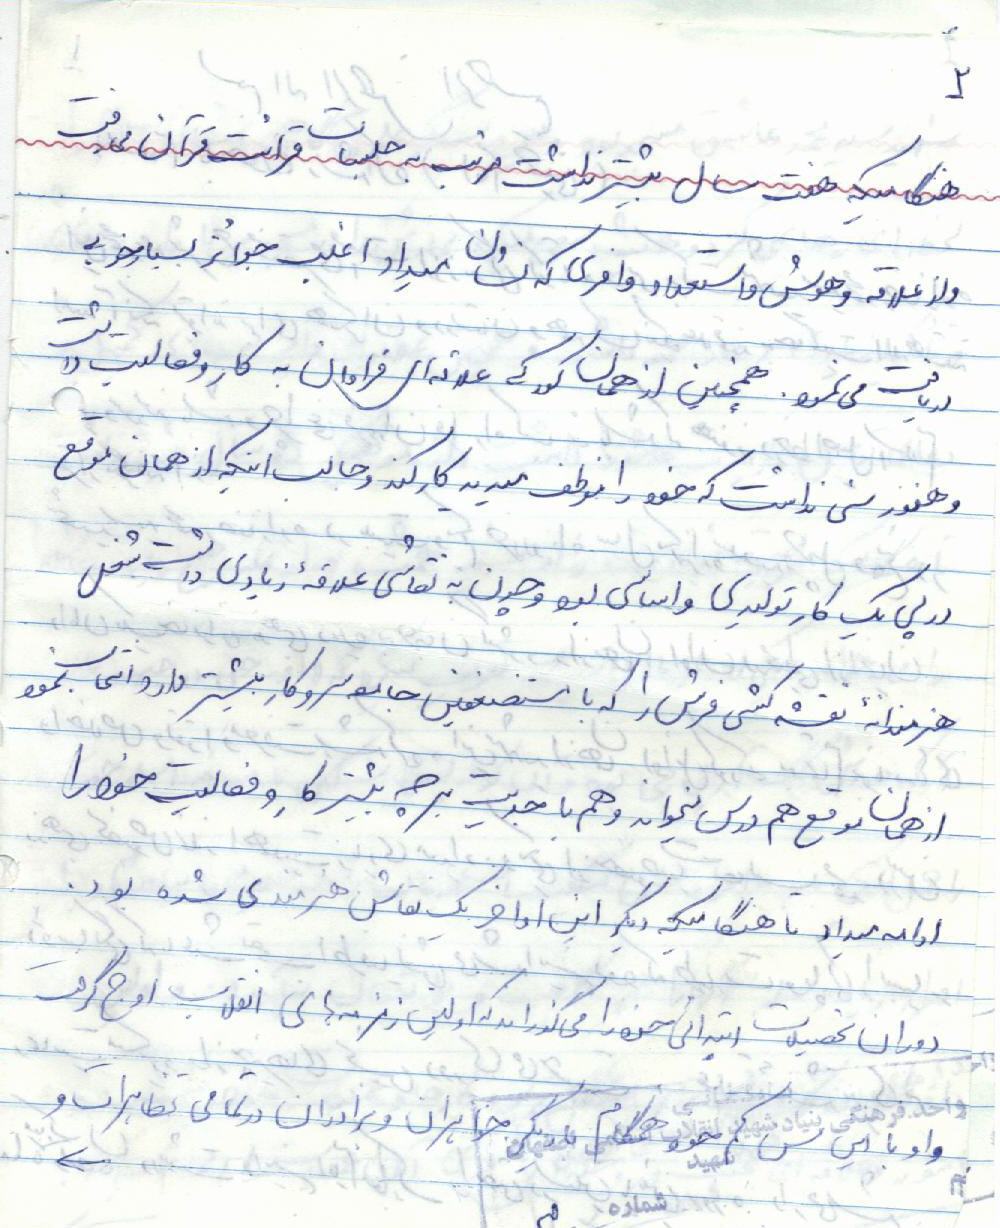 ۲
هنگامیکه هفت سال بیشتر نداشت مرتب به جلسات قرائت قرآن می‌رفت
و از علاقه و هوش و استعداد وافری که نشان میداد اغلب جوائز بسیار خوبی
دریافت می نمود. همچنین از همان کودکی علاقه‌ای فراوان به کار و فعالیت داشت
و هنوز سنی نداشت که خود را موظف میدید کار کند و جالب اینکه از همان موقع
در پی یک کار تولیدی و اساسی بود و چون به نقاشی علاقهٔ زیادی داشت شغل
هنرمندانهٔ نقشه کشی فرش را که با مستضعفین جامعه سر و کار بیشتر دارد انتخاب نمود
از همان موقع هم درس میخواند و هم با جدیت هر چه بیشتر کار و فعالیت خود را
ادامه میداد تا هنگامیکه دیگر این اواخر یک نقاش هنرمندی شده بود.
دوران تحصیلات ابتدائی خود را می گذراند که اولین زمزمه های انقلاب اوج گرفت
و او با این سن کم خود همگام با دیگر خواهران و برادران در تمامی تظاهرات و
واحد فرهنگی بنیاد شهید انقلاب اسلامی
شهید
شماره